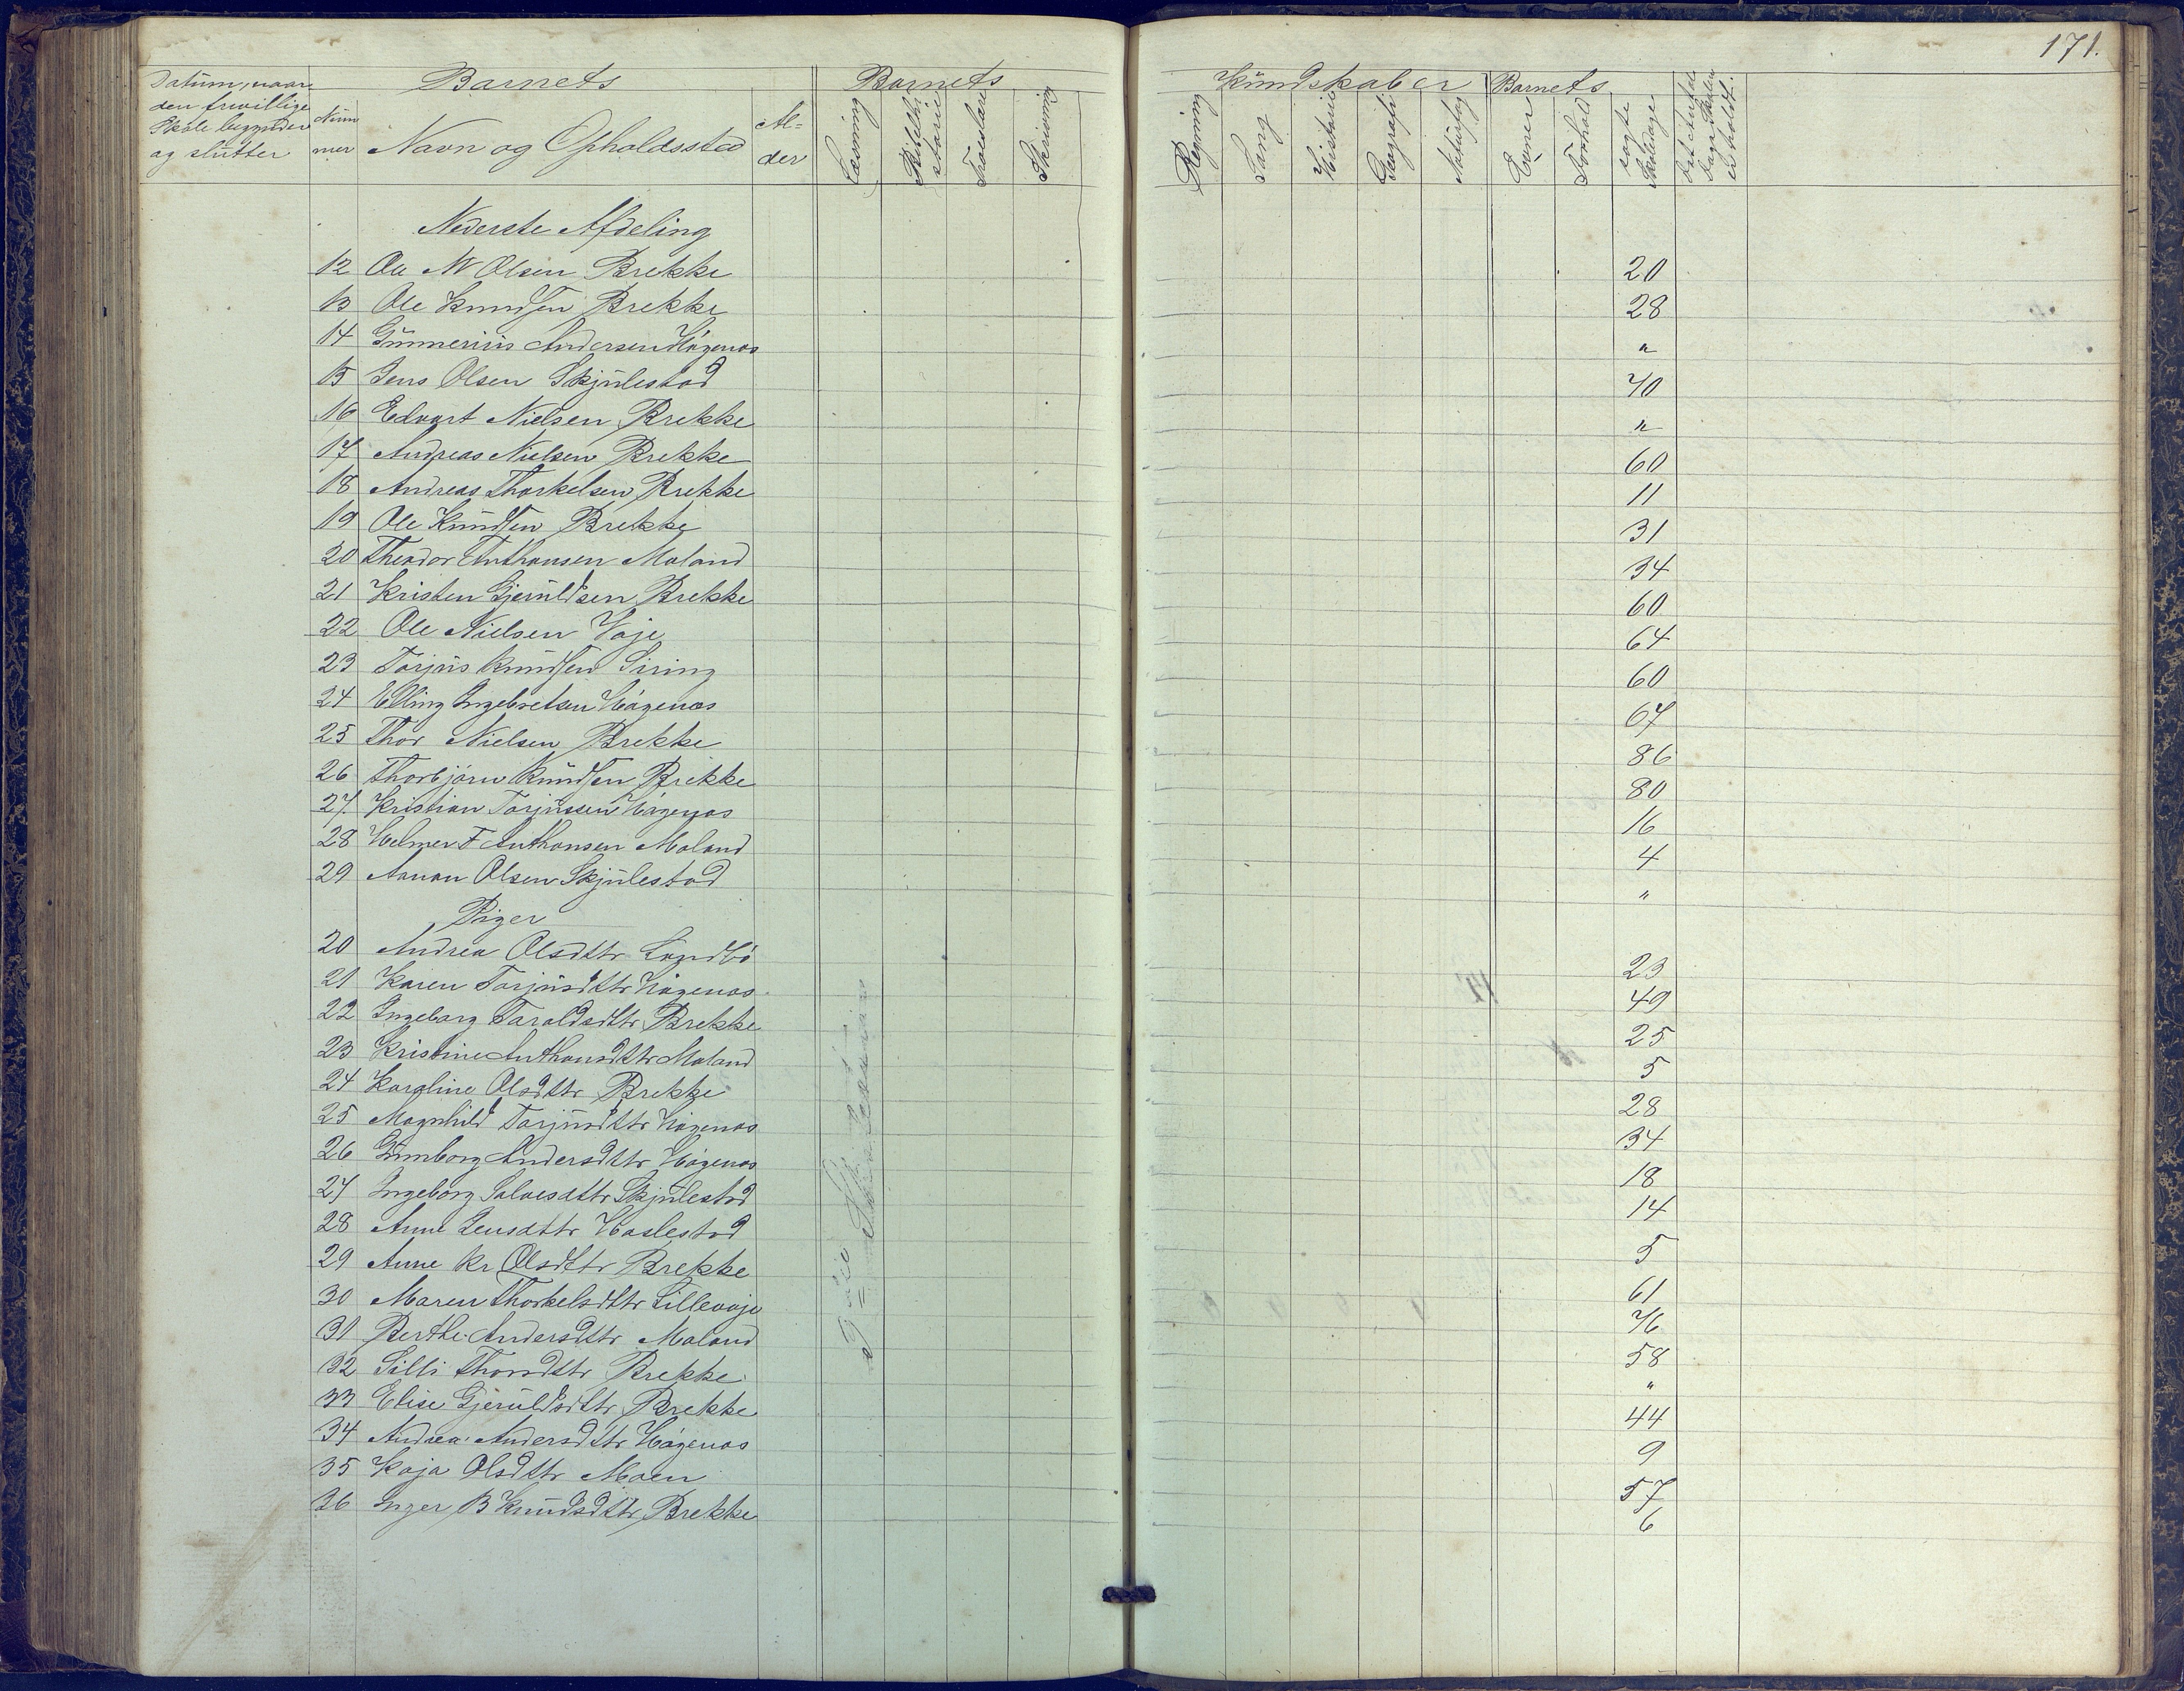 171.
Datum, naar den frivillige Skole begynder og slutter
Num mer
Barnets
Navn og Opholdssted
Al= der
Barnets
Læsning
Bibelhi storie
Troeslære
Skrivning
Kundskaber
Regning
Sang
Historie
Geografi
Naturfag
Barnets
Evner
Forhold
søgte Skoledage
Det Antal Dage Skolen er holdt.
Nederste Afdeling
12 Ole N Olsen Brekke 20
13 Ole Knudsen Brekke 28
14 Gunnerius Andersen Høgenos "
15 Jens Olsen Skjulestad 40
16 Edvart Nielsen Brekke "
17 Andreas Nielsen Brekke 60
18 Andreas Thorkelsen Brekke 11
19 Ole Knudsen Brekke 31
20 Theodor Anthonsen Moland 34
21 Kristen Gjeruldsen Brekke 60
22 Ole Nielsen Voje 64
23 Torjus Knudsen Siring 60
24 Elling Ingebretsen Høgenos 67
25 Thor Nielsen Brekke 86
26 Thorbjørn Knudsen Brekke 80
27. Kristian Torjussen Høgenos 16
28 Helmer F Anthonsen Moland 4
29 Aanon Olsen Skjulestad "
Piger
20 Andrea Olsdttr 23
21 Karen Torjusdttr Høgenos 49
22 Ingeborg Taraldsdttr Brekke 25
23 Kristine Anthonsdttr Moland 5
24 Karoline Olsdttr Brekke 28
25 Magnhild Torjusdttr Høgenos 34
26 Gunborg Andersdttr Høgenos 18
27 Ingeborg Salvesdttr Skjulestad 14
28 Anne Jensdttr Haslestad 5
29 Anne Kr Olsdttr Brekke 61
30 Maren Thorkelsdttr Lillevoje 76
31 Berthe Andersdttr Moland 58
32 Silli Thorsdttr Brekke "
33 Elise Gjeruldsdttr Brekke 44
34 Andrea Andersdttr Høgenos 9
35 Kaja Olsdttr Moen 57
36 Inger B Knudsdttr Brekke 6